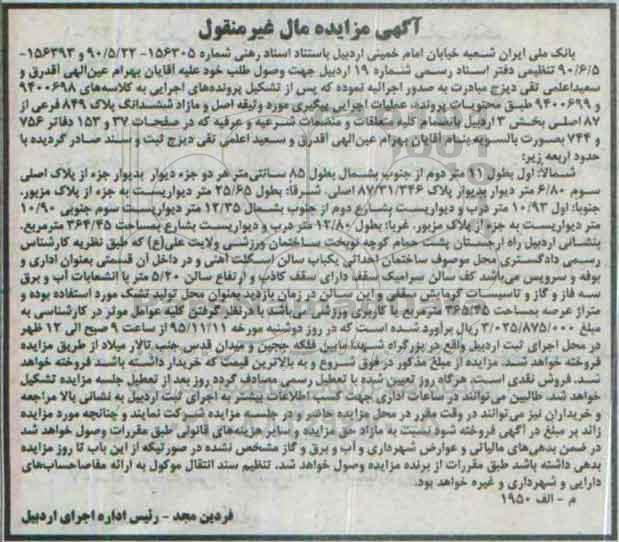 آگهی مزایده مال غیرمنقول
بانک ملی ایران شعبه خیابان امام خمینی اردبیل باستناد اسناد رهنی شماره ۱۵۶۳۰۵- ۹۰/۵/۲۲ و ۱۵۶۳۹۳-
۹۰/۶/۵ تنظیمی دفتر اسناد رسمی شماره ۱۹ اردبیل جهت وصول طلب خود علیه آقایان بهرام عین‌الهی آقدرق و
سعیداعلمی تقی دیزج مبادرت به صدور اجرائیه نموده که پس از تشکیل پرونده‌های اجرایی به کلاسه‌های ۹۴۰۰۶۹۸
و ۹۴۰۰۶۹۹ طبق محتویات پرونده، عملیات اجرایی پیگیری مورد وثیقه اصل و مازاد ششدانگ پلاک ۸۴۹ فرعی از
۸۷ اصلی بخش ۳ اردبیل بانضمام کلیه متعلقات و منضمات شرعیه و عرفیه که در صفحات ۳۷ و ۱۵۳ دفاتر ۷۵۶
و ۷۴۴ بصورت بالسویه بنام آقایان بهرام عین‌الهی آقدرق و سعید اعلمی تقی دیزج ثبت و سند صادر گردیده با
حدود اربعه زیر:
شمالا: اول بطول ۱۱ متر دوم از جنوب بشمال بطول ۸۵ سانتی‌متر هر دو جزء دیوار بدیوار جزء از پلاک اصلی
سوم ۶/۸۰ متر دیوار بدیوار پلاک ۸۷/۳۱/۳۴۶ اصلی. شرقا: بطول ۲۵/۶۵ متر دیواریست به جزء از پلاک مزبور.
جنوبا: اول ۱۰/۹۳ متر درب و دیواریست بشارع دوم از جنوب بشمال ۱۲/۳۵ متر دیواریست سوم جنوبی ۱۰/۹۰
متر دیواریست به جزء از پلاک مزبور. غربا: بطول ۱۲/۸۰ متر درب و دیواریست بشارع بمساحت ۳۶۴/۴۵ مترمربع.
بنشانی اردبیل راه ارجستان پشت حمام کوچه نوبخت ساختمان ورزشی ولایت علی(ع) که طبق نظریه کارشناس
رسمی دادگستری محل موصوف ساختمان احداثی یکباب سالن اسکلت آهنی و در داخل آن قسمتی بعنوان اداری و
بوفه و سرویس می‌باشد کف سالن سرامیک سقف دارای سقف کاذب و ارتفاع سالن ۵/۲۰ متر با انشعابات آب و برق
سه فاز و گاز و تاسیسات گرمایش سقفی و این سالن در زمان بازدید بعنوان محل تولید تشک مورد استفاده بوده و
متراژ عرصه بمساحت ۳۶۵/۴۵ مترمربع با کاربری ورزشی می‌باشد با درنظر گرفتن کلیه عوامل موثر در کارشناسی به
مبلغ ۳/۰۲۵/۸۷۵/۰۰۰ ریال برآورد شده است که در روز دوشنبه مورخه ۹۵/۱۱/۱۱ از ساعت ۹ صبح الی ۱۲ ظهر
در محل اجرای ثبت اردبیل واقع در بزرگراه شهدا مابین فلکه ججین و میدان قدس جنب تالار میلاد از طریق مزایده
فروخته خواهد شد. مزایده از مبلغ مذکور در فوق شروع و به بالاترین قیمت که خریدار داشته باشد فروخته خواهد
شد. فروش نقدی است. هرگاه روز تعیین شده با تعطیل رسمی مصادف گردد روز بعد از تعطیل جلسه مزایده تشکیل
خواهد شد. طالبین می‌توانند در ساعات اداری جهت کسب اطلاعات بیشتر به اجرای ثبت اردبیل به نشانی بالا مراجعه
و خریداران نیز می‌توانند در وقت مقرر در محل مزایده حاضر و در جلسه مزایده شرکت نمایند و چنانچه مورد مزایده
زائد بر مبلغ در آگهی فروخته شود نسبت به مازاد حق مزایده و سایر هزینه‌های قانونی طبق مقررات وصول خواهد شد
در ضمن بدهی‌های مالیاتی و عوارض شهرداری و آب و برق و گاز مشخص نشده در صورتیکه از این باب تا روز مزایده
بدهی داشته باشد طبق مقررات از برنده مزایده وصول خواهد شد. تنظیم سند انتقال موکول به ارائه مفاصاحساب‌های
دارایی و شهرداری و غیره خواهد بود.
م - الف ۱۹۵۰
فردین مجد - رئیس اداره اجرای اردبیل